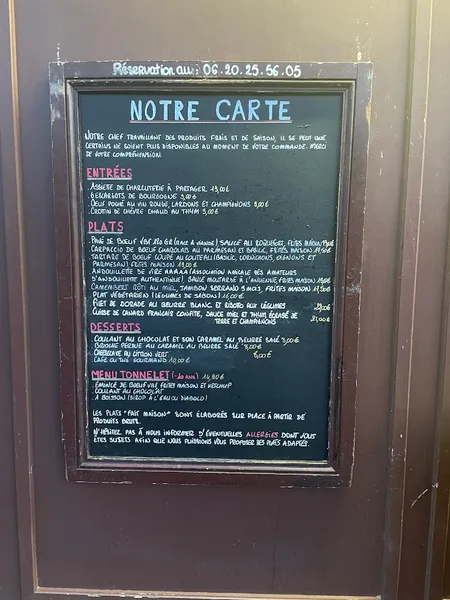 Réservation au : 06.20.25.56.05
NOTRE CARTE
NOTRE CHEF TRAVAILLANT DES PRODUITS FRAIS ET DE SAISON, IL SE PEUT QUE
CERTAINS NE SOIENT PLUS DISPONIBLES AU MOMENT DE VOTRE COMMANDE. MERCI
DE VOTRE COMPRÉHENSION.
ENTRÉES
. ASSIETTE DE CHARCUTERIE À PARTAGER 19,00€
. 6 ESCARGOTS DE BOURGOGNE 9,00€
. OEUF POCHÉ AU VIN ROUGE, LARDONS ET CHAMPIGNONS 9,00€
. CROTIN DE CHÈVRE CHAUD AU THYM 9,00€
PLATS
. PAVÉ DE BOEUF VBF 220 GR (RACE À VIANDE) SAUCE AU ROQUEFORT, FRITES MAISON
. CARPACCIO DE BOEUF CHAROLAIS AU PARMESAN ET BASILIC, FRITES MAISON
. TARTARE DE BOEUF COUPÉ AU COUTEAU (BASILIC, CORNICHONS, OIGNONS ET
PARMESAN) FRITES MAISON 19,00€
. ANDOUILLETTE DE VIRE AAAAA (ASSOCIATION AMICALE DES AMATEURS
D'ANDOUILLETTE AUTHENTIQUE), SAUCE MOUTARDE À L'ANCIENNE, FRITES MAISON
CAMEMBERT RÔTI AU MIEL, JAMBON SERRANO 9 MOIS, FRITES MAISON
. PLAT VÉGÉTARIEN (LÉGUMES DE SAISON) 16,00€
. FILET DE DORADE AU BEURRE BLANC ET RISOTTO AUX LÉGUMES
. CUISSE DE CANARD FRANÇAIS CONFITE, SAUCE MIEL ET THYM ÉCRASÉ DE
TERRE ET CHAMPIGNONS 21,00€
DESSERTS
. COULANT AU CHOCOLAT ET SON CARAMEL AU BEURRE SALÉ 9,00€
. BRIOCHE PERDUE AU CARAMEL AU BEURRE SALÉ 8,00€
. CHEESECAKE AU CITRON VERT 8,00€
. CAFÉ OU THÉ GOURMAND 10,00€
MENU TONNELET (-10 ANS) 14,90€
. ÉMINCÉ DE BOEUF VBF, FRITES MAISON ET KETCHUP
. COULANT AU CHOCOLAT
. 1 BOISSON (SIROP À L'EAU OU DIABOLO)
LES PLATS "FAIT MAISON" SONT ÉLABORÉS SUR PLACE À PARTIR DE
PRODUITS BRUTS.
N'HÉSITEZ PAS À NOUS INFORMER D'ÉVENTUELLES ALLERGIES DONT VOUS
ÊTES SUJETS AFIN QUE NOUS PUISSIONS VOUS PROPOSER DES PLATS ADAPTÉS.